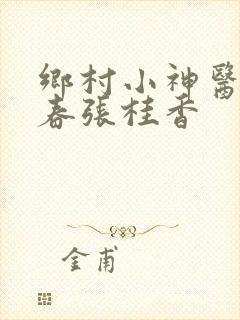 鄉村小神醫
春張桂香
金甫